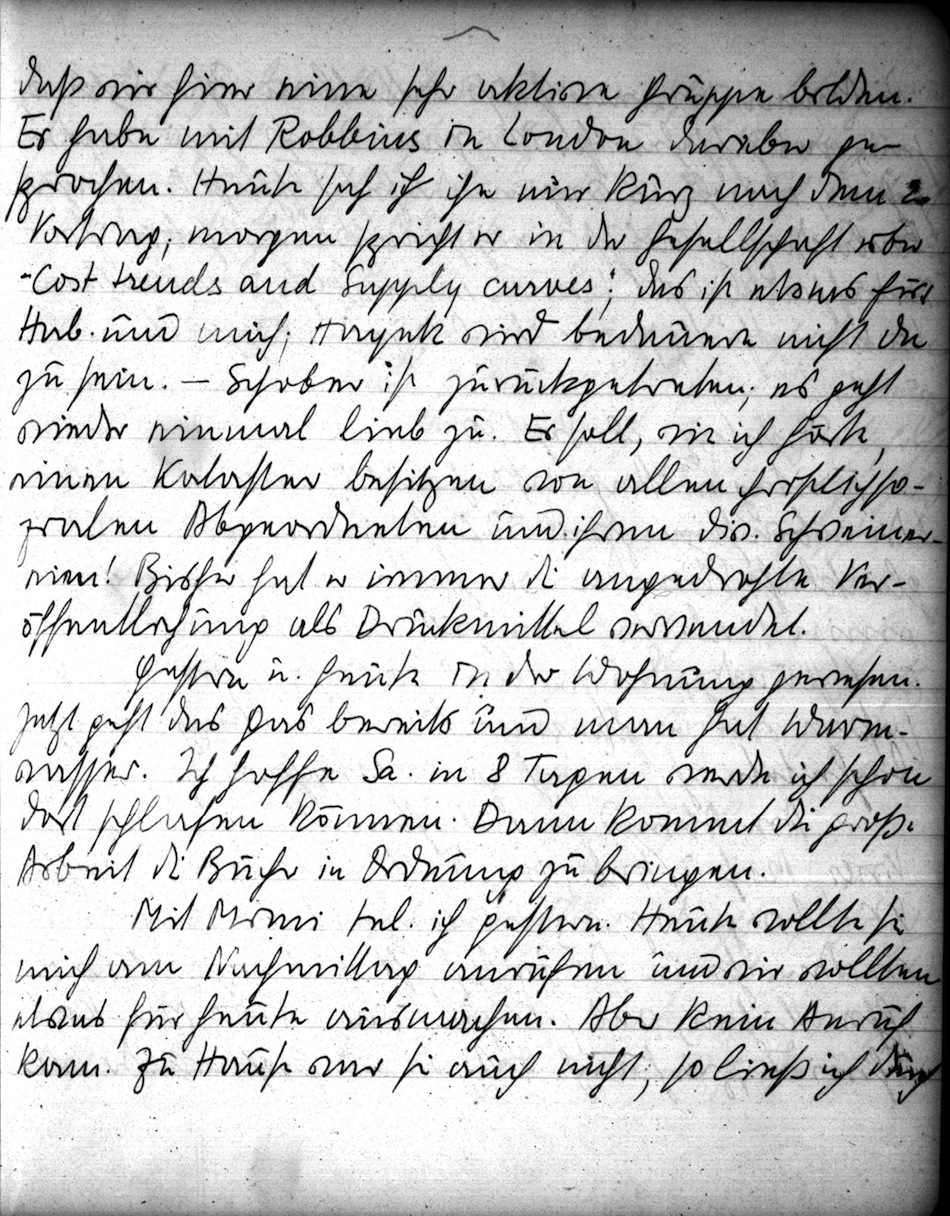 daß wir hier eine sehr aktive Gruppe bilden.
Er habe mit Robbins in London darüber ge-
sprochen. Heute sah ich ihn nur kurz nach dem 2.
Vortrag; morgen spricht er in der Gesellschaft über
"Cost trends and Supply curves"; das ist etwas fürs
Hab. und mich; Hayek wird bedauern nicht da
zu sein. — Schober ist zurückgetreten; es geht
wieder einmal lieb zu. Er soll, wie ich hörte,
einen Kataster besitzen von allen christlichso-
zialen Abgeordneten und ihren div. Schweiner-
eien! Bisher hat er immer die angedrohte Ver-
öffentlichung als Druckmittel verwendet.
Gestern u. heute in der Wohnung gewesen.
Jetzt geht das Gas bereits und man hat Warm-
wasser. Ich hoffe Sa. in 8 Tagen werde ich schon
dort schlafen können. Dann kommt die große
Arbeit die Bücher in Ordnung zu bringen.
Mit Mimi tel. ich gestern. Heute wollte sie
mich am Nachmittag anrufen und wir wollten
etwas für heute ausmachen. Aber kein Anruf
kam. Zu Hause war sie auch nicht, so ließ ich durch